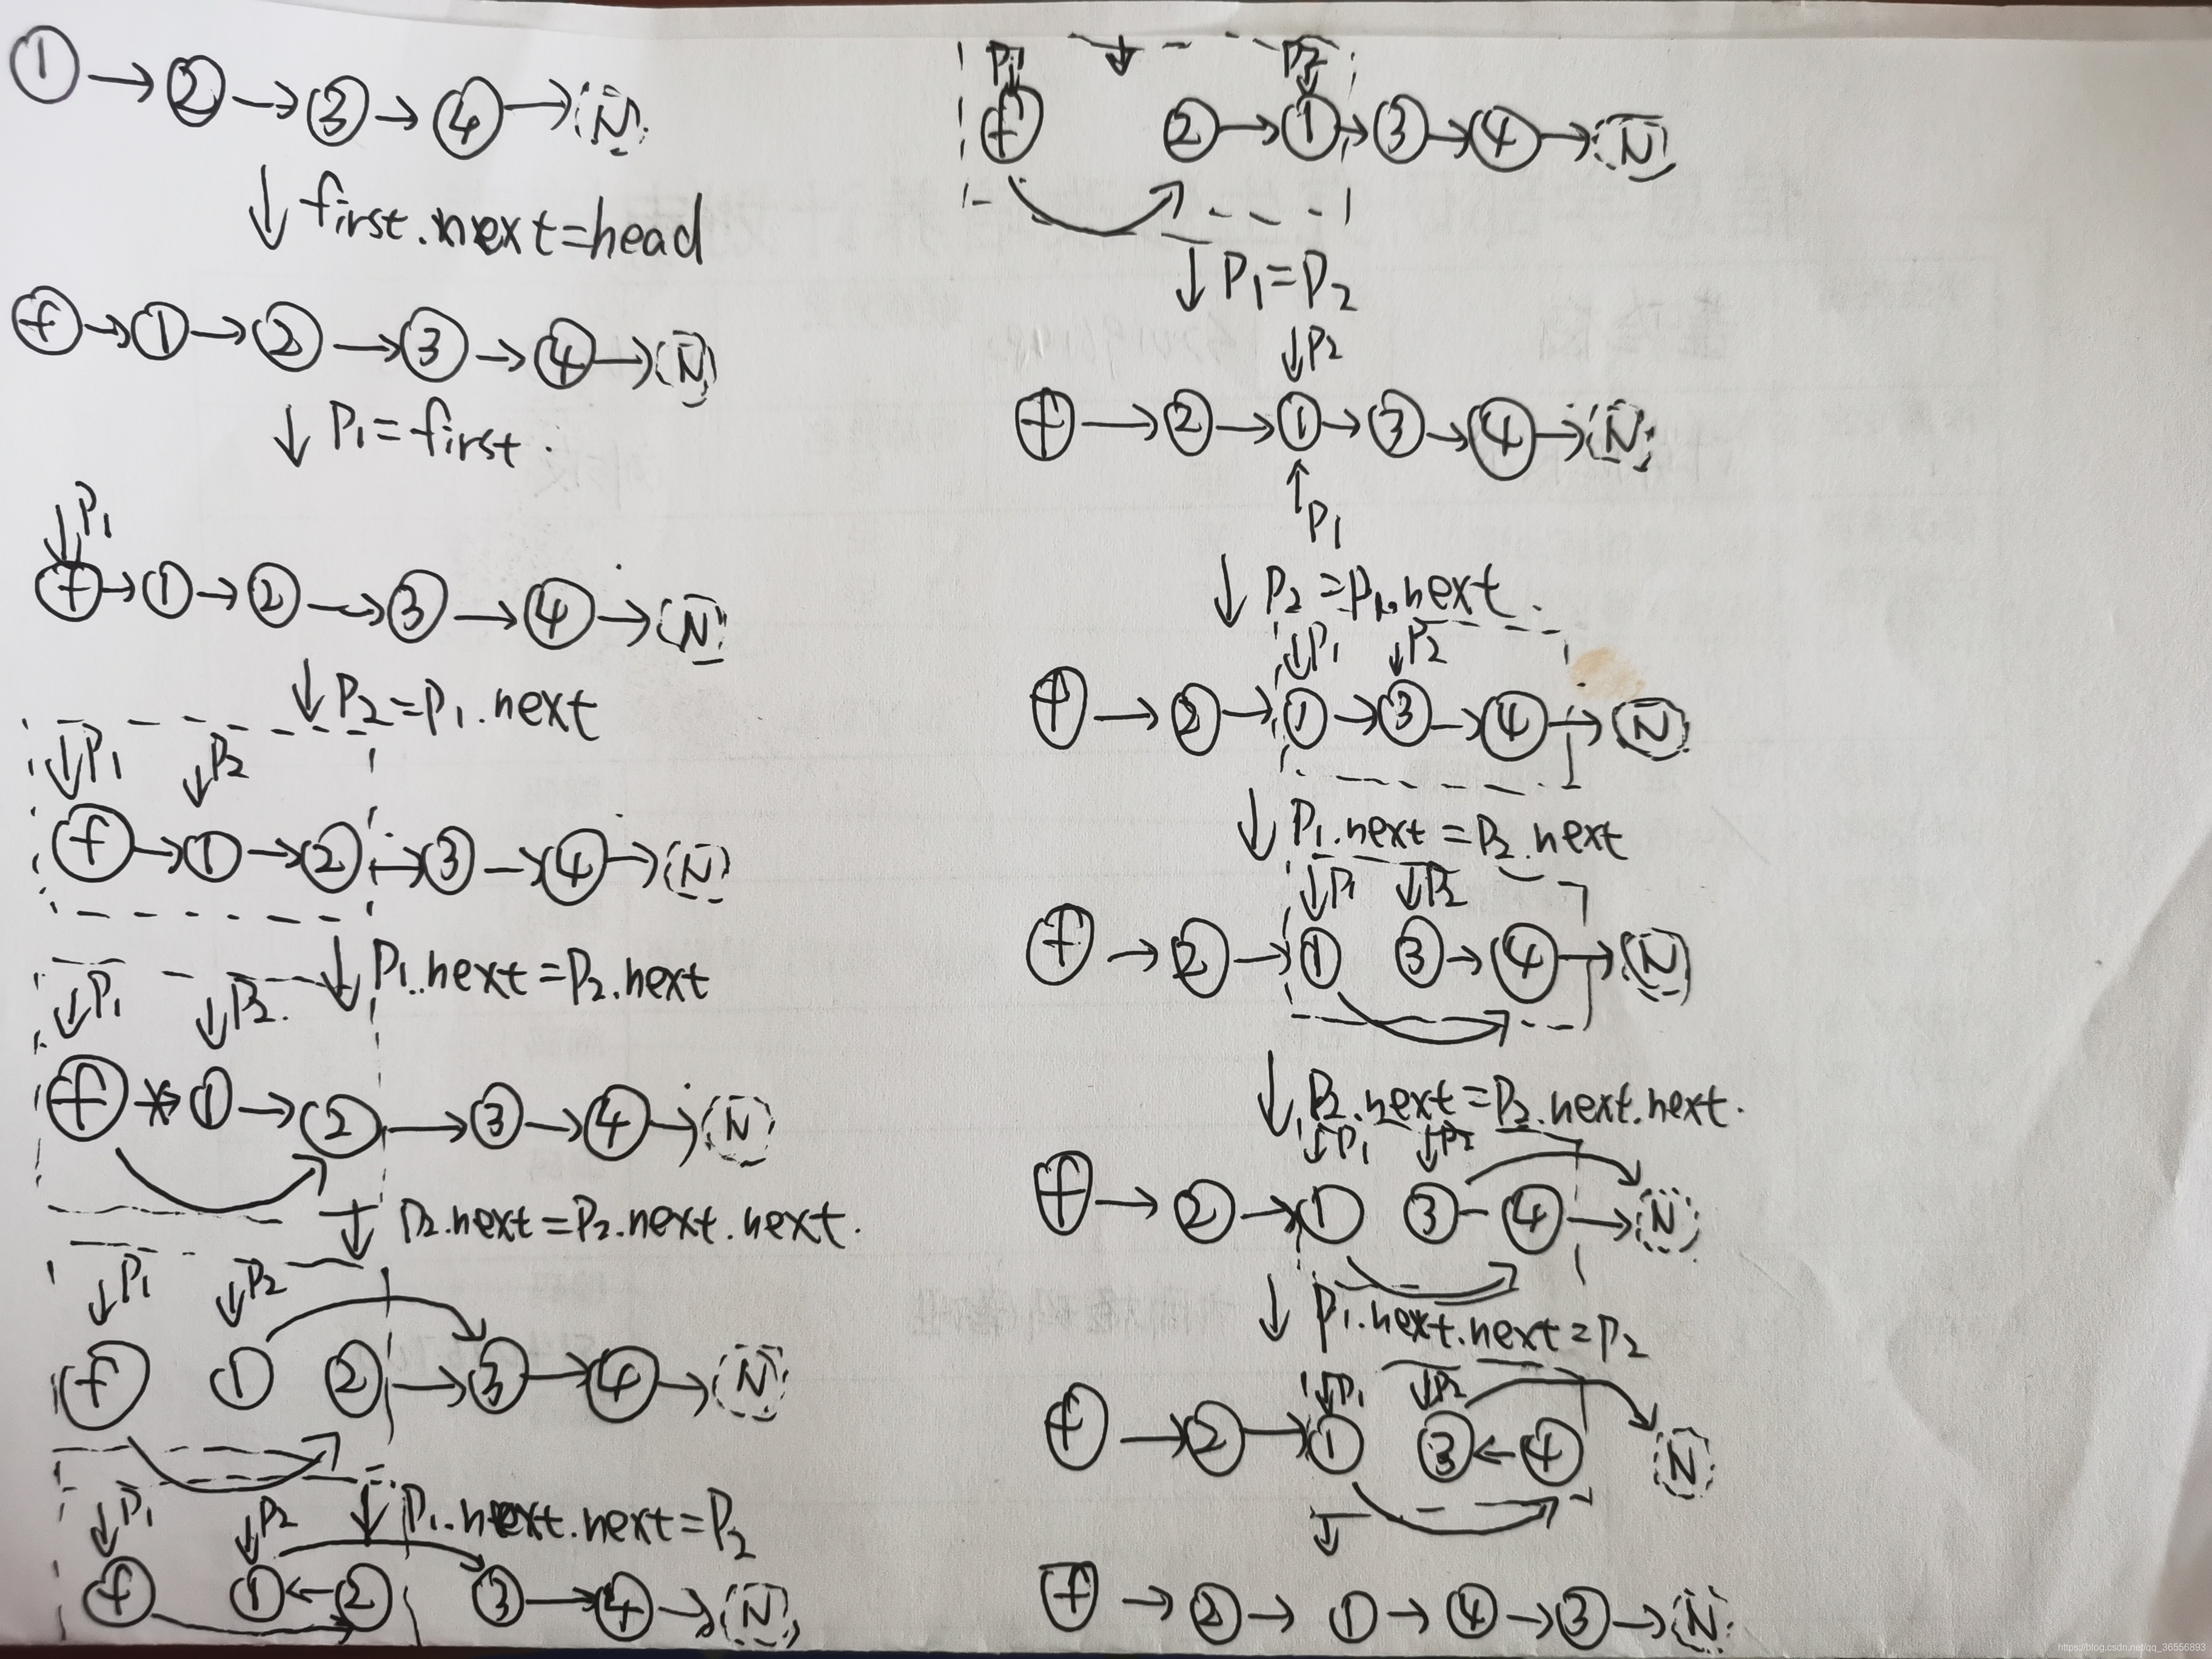 1 → 2 → 3 → 4 → N
↓ first.next=head
f → 1 → 2 → 3 → 4 → N
↓ P1=first.
↓P1
f → 1 → 2 → 3 → 4 → N
↓ P2=P1.next
↓P1 ↓P2
f → 1 → 2 → 3 → 4 → N
↓ P1.next=P2.next
↓P1 ↓P2.
f → 1 → 2 → 3 → 4 → N
↓ P2.next=P2.next.next.
↓P1 ↓P2
f 1 2 → 3 → 4 → N
↓ P1.next.next=P2
↓P1 ↓P2
f 1 ← 2 3 → 4 → N
P1 ↓ P2
f 2 → 1 → 3 → 4 → N
↓ P1=P2
↓P2
f → 2 → 1 → 3 → 4 → N
↑P1
↓ P2=P1.next.
↓P1 ↓P2
f → 2 → 1 → 3 → 4 → N
↓ P1.next=P2.next
↓P1 ↓P2
f → 2 → 1 3 → 4 → N
↓ P2.next=P2.next.next.
↓P1 ↓P2
f → 2 → 1 3 - 4 → N
↓ P1.next.next=P2
↓P1 ↓P2
f → 2 → 1 3 ← 4 N
↓
f → 2 → 1 → 4 → 3 → N
https://blog.csdn.net/qq_36556893